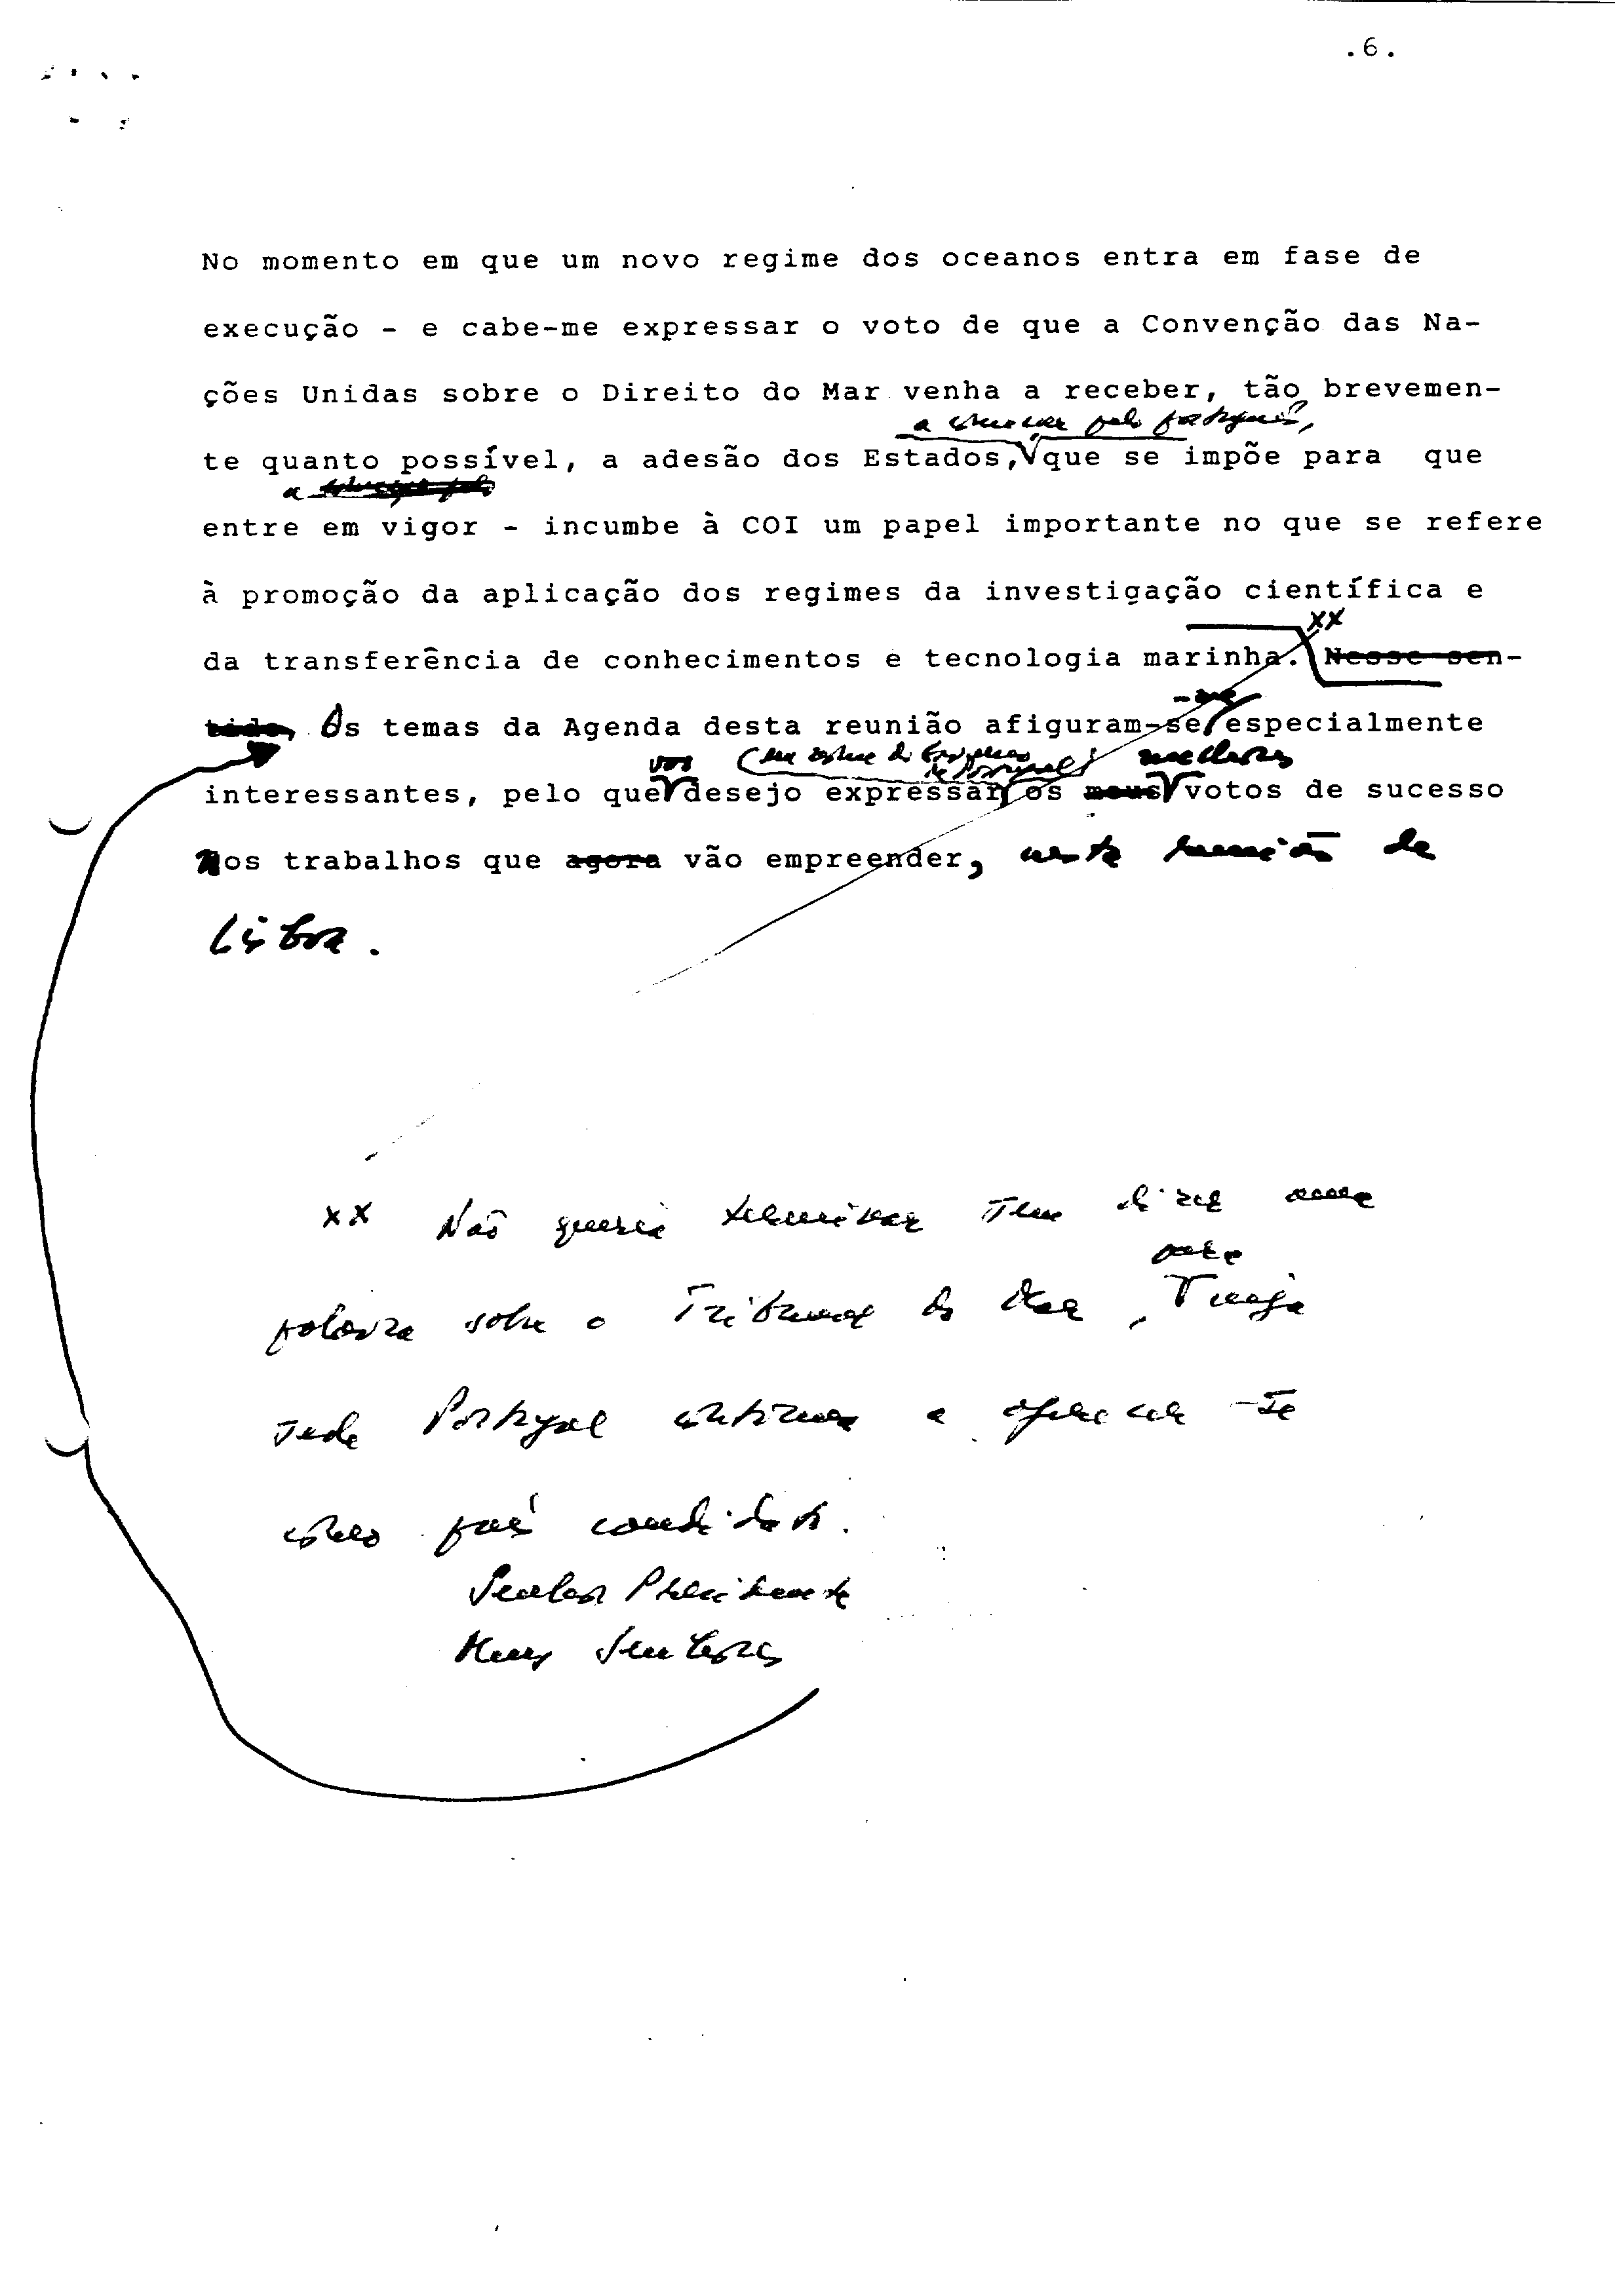 .6.
No momento em que um novo regime dos oceanos entra em fase de
execução - e cabe-me expressar o voto de que a Convenção das Na-
ções Unidas sobre o Direito do Mar venha a receber, tão brevemen-
a começar pelo português,
te quanto possível, a adesão dos Estados, que se impõe para que
a
entre em vigor - incumbe à COI um papel importante no que se refere
à promoção da aplicação dos regimes da investigação científica e
xx
da transferência de conhecimentos e tecnologia marinha. Nesse sen-
-me
tido, Os temas da Agenda desta reunião afiguram-se especialmente
vos (em nome do Governo de Portugal) melhores
interessantes, pelo que desejo expressar os meus votos de sucesso
nos trabalhos que agora vão empreender, nesta reunião de
Lisboa.
xx Não queria terminar sem dizer uma
para
palavra sobre o Tribunal do Mar, cuja
sede Portugal continua a oferecer-se
como país candidato.
Senhor Presidente
Meus Senhores